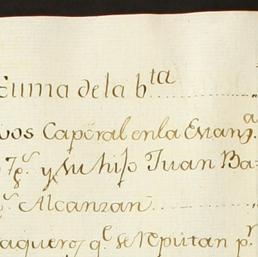 suma de la b.ta
vos Caporal en la Estanz.a
7p.s y su hijo Juan Ba=
p.s Alcanzan
aqueros q.e se reputan p.r